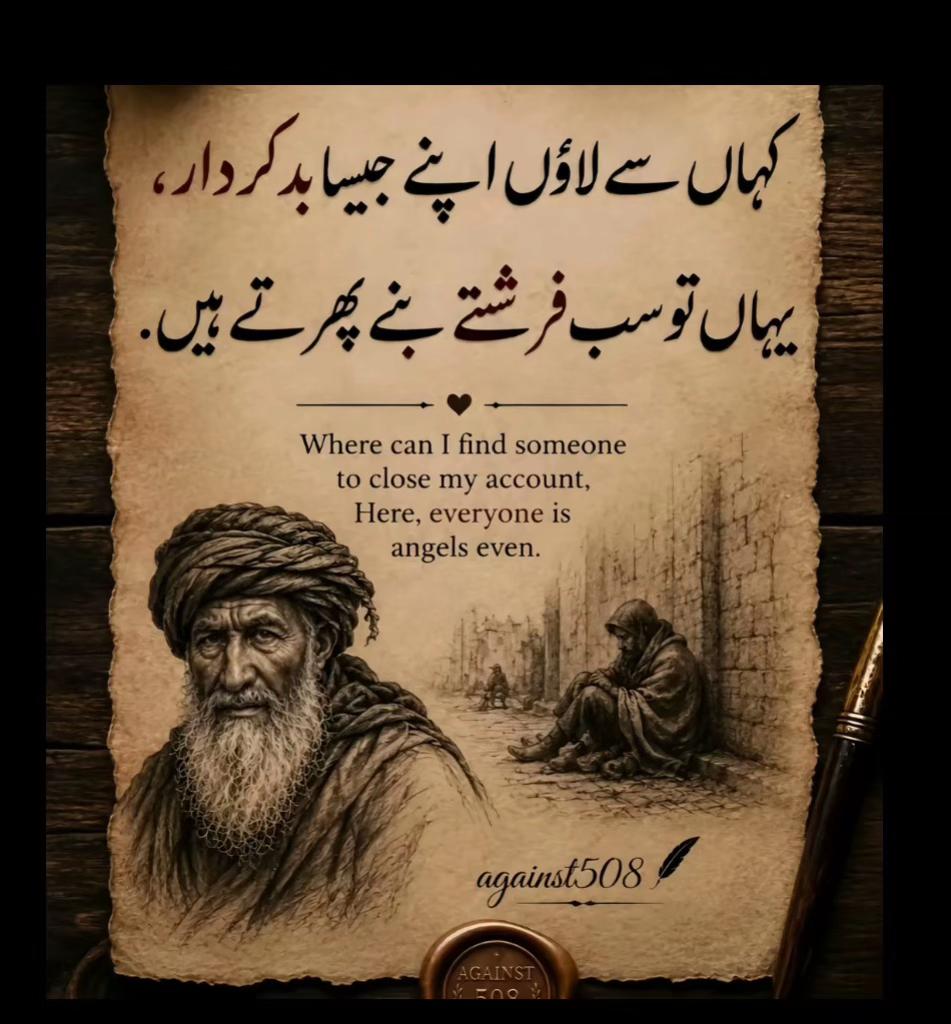 کہاں سے لاؤں اپنے جیسا بدکردار،
یہاں تو سب فرشتے بنے پھرتے ہیں.
Where can I find someone
to close my account,
Here, everyone is
angels even.
against508
AGAINST
508